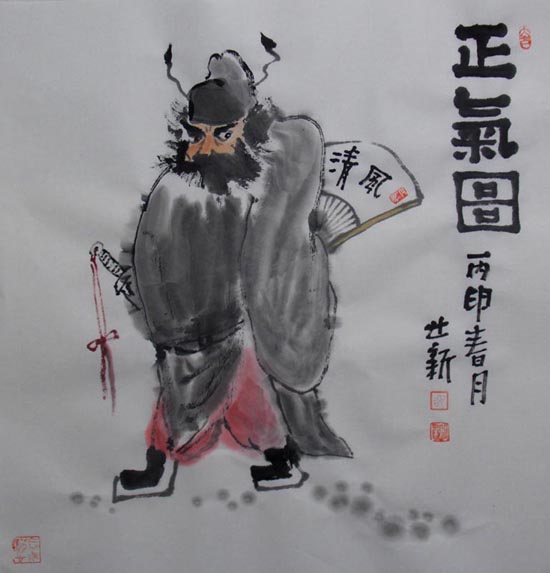 正氣圖
丙印春月
世新
清風